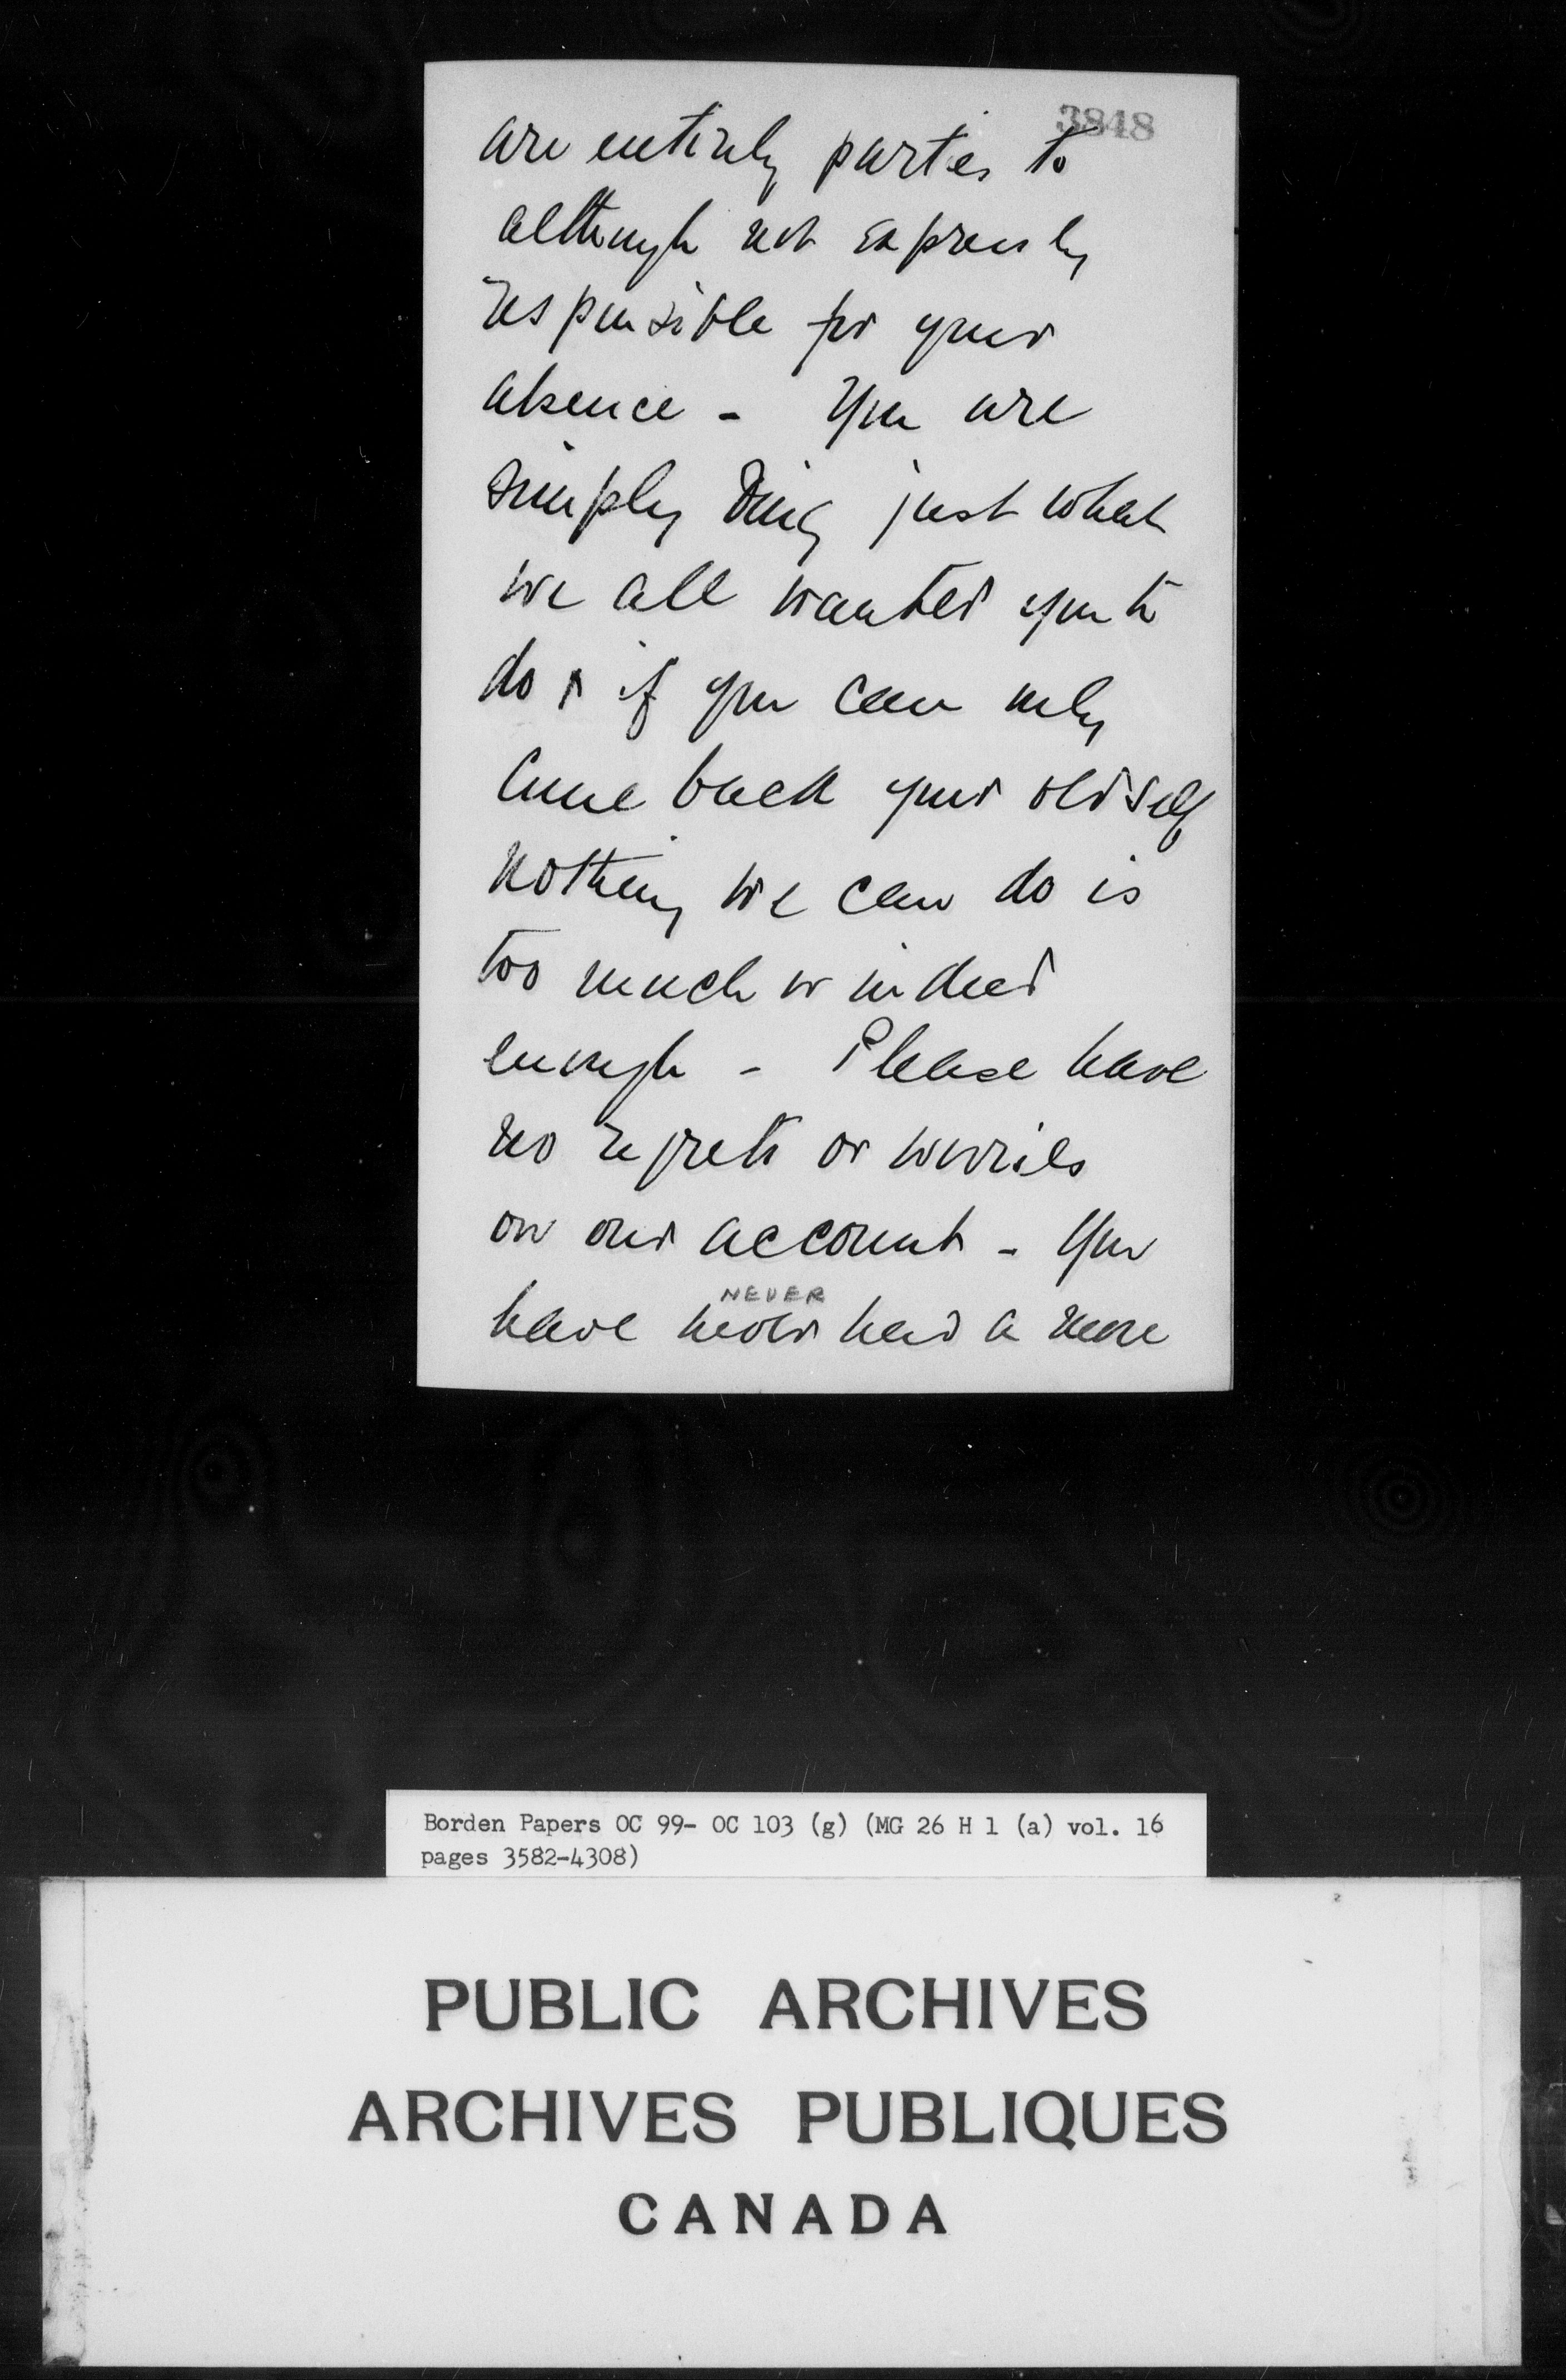 3848
are entirely parties to
although not expressly
responsible for your
absence - You are
simply doing just what
we all wanted you to
do & if you can only
come back your old self
nothing we can do is
too much or indeed
enough - Please have
no regrets or worries
on our account - You
NEVER
have never had a more
Borden Papers OC 99- OC 103 (g) (MG 26 H 1 (a) vol. 16
pages 3582-4308)
PUBLIC ARCHIVES
ARCHIVES PUBLIQUES
CANADA